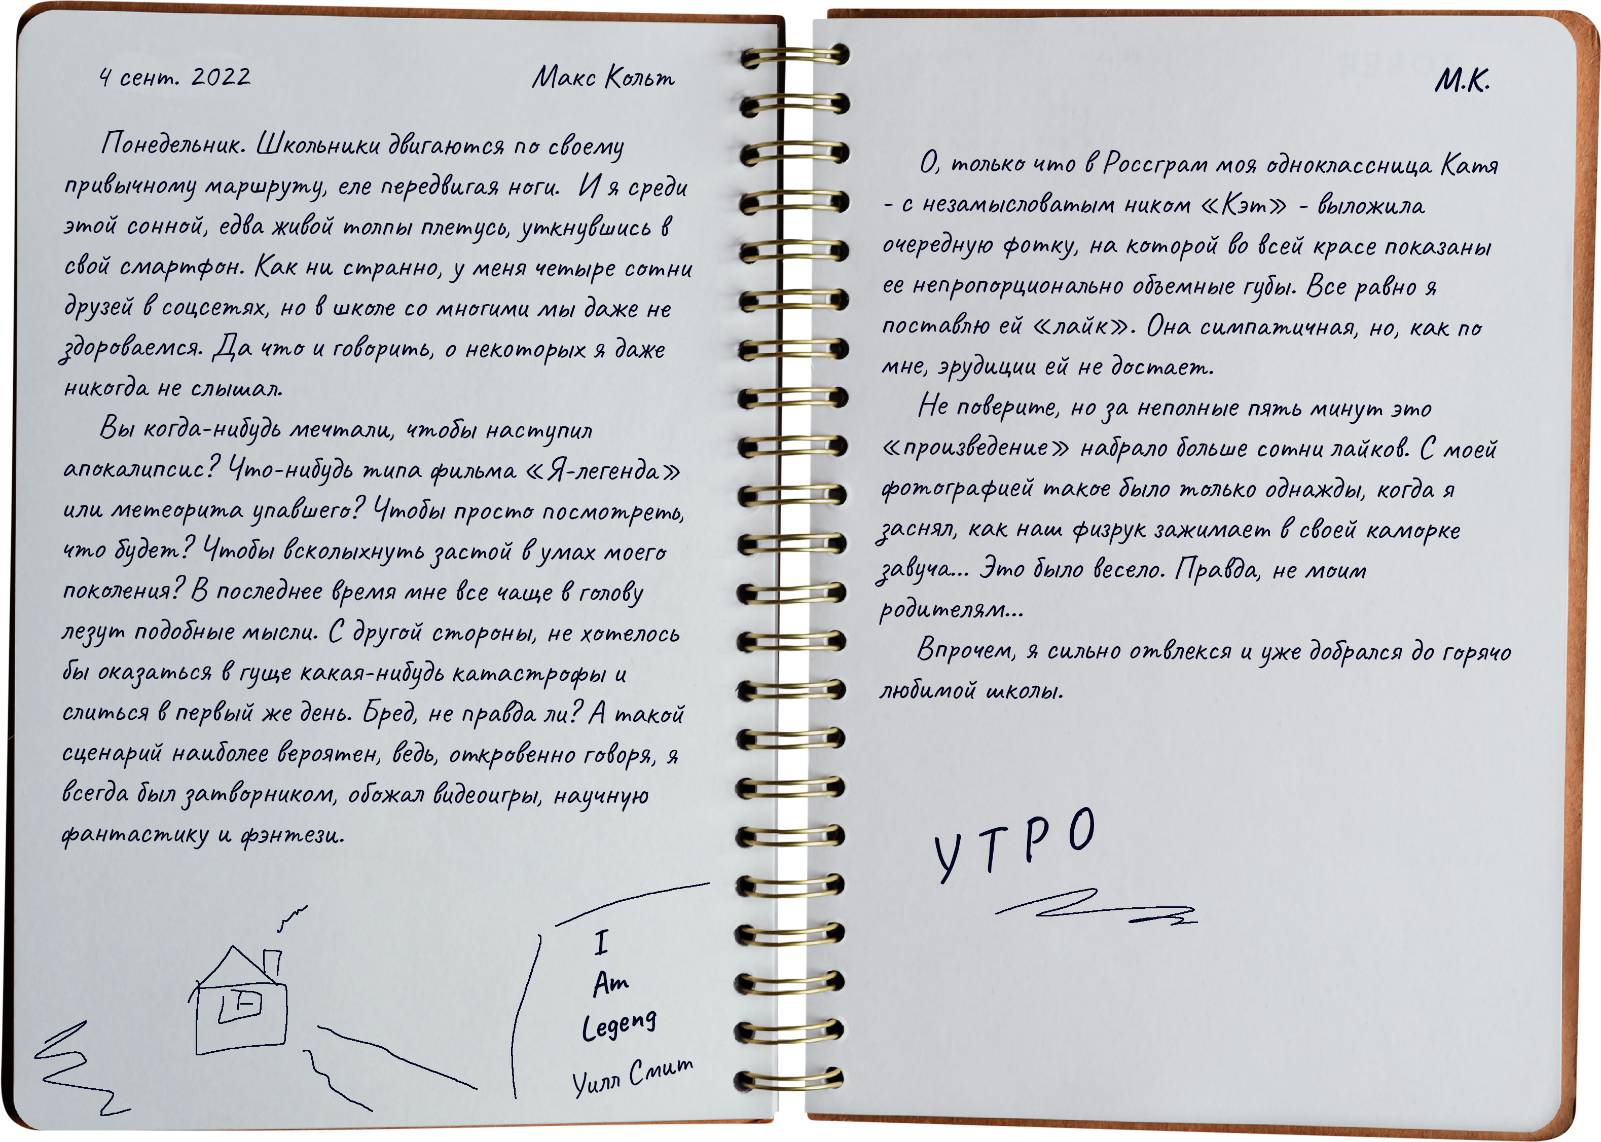 4 сент. 2022
Макс Кольт
Понедельник. Школьники двигаются по своему
привычному маршруту, еле передвигая ноги. И я среди
этой сонной, едва живой толпы плетусь, уткнувшись в
свой смартфон. Как ни странно, у меня четыре сотни
друзей в соцсетях, но в школе со многими мы даже не
здороваемся. Да что и говорить, о некоторых я даже
никогда не слышал.
Вы когда-нибудь мечтали, чтобы наступил
апокалипсис? Что-нибудь типа фильма «Я-легенда»
или метеорита упавшего? Чтобы просто посмотреть,
что будет? Чтобы всколыхнуть застой в умах моего
поколения? В последнее время мне все чаще в голову
лезут подобные мысли. С другой стороны, не хотелось
бы оказаться в гуще какая-нибудь катастрофы и
слиться в первый же день. Бред, не правда ли? А такой
сценарий наиболее вероятен, ведь, откровенно говоря, я
всегда был затворником, обожал видеоигры, научную
фантастику и фэнтези.
I
Am
Legeng
Уилл Смит
М.К.
О, только что в Россграм моя одноклассница Катя
- с незамысловатым ником «Кэт» - выложила
очередную фотку, на которой во всей красе показаны
ее непропорционально объемные губы. Все равно я
поставлю ей «лайк». Она симпатичная, но, как по
мне, эрудиции ей не достает.
Не поверите, но за неполные пять минут это
«произведение» набрало больше сотни лайков. С моей
фотографией такое было только однажды, когда я
заснял, как наш физрук зажимает в своей каморке
завуча... Это было весело. Правда, не моим
родителям...
Впрочем, я сильно отвлекся и уже добрался до горячо
любимой школы.
УТРО